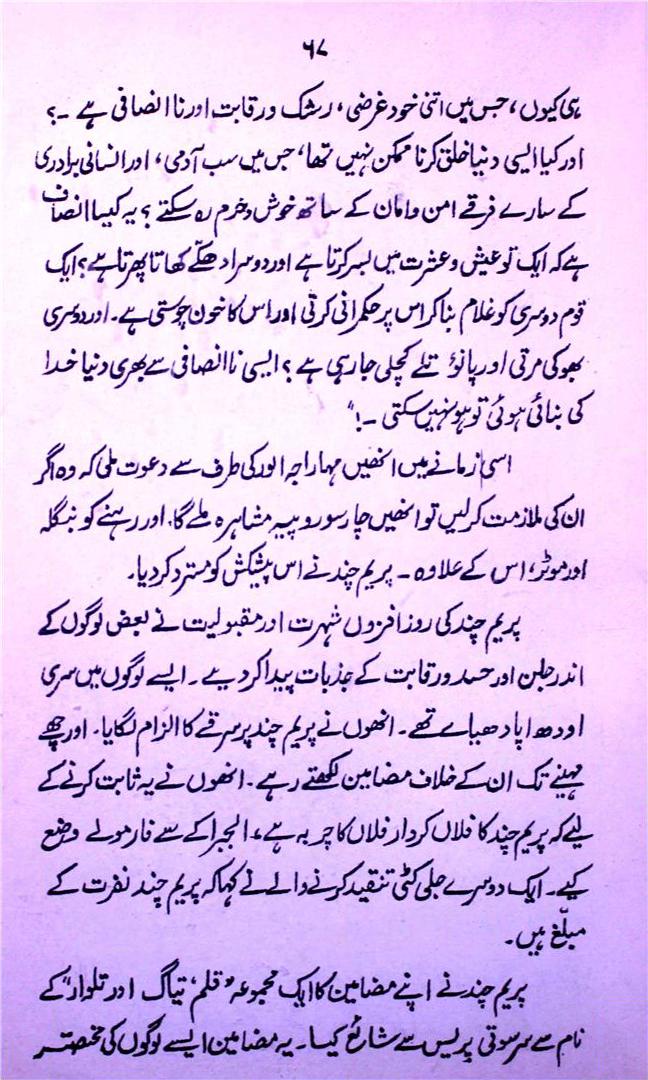 ۶۷
ہی کیوں، جس میں اتنی خود غرضی، رشک و رقابت اور ناانصافی ہے -؟
اور کیا ایسی دنیا خلق کرنا ممکن نہیں تھا، جس میں سب آدمی، اور انسانی برادری
کے سارے فرقے امن و امان کے ساتھ خوش و خرم رہ سکتے ؟ یہ کیسا انصاف
ہے کہ ایک تو عیش و عشرت میں بسر کرتا ہے اور دوسرا دھکّے کھاتا پھرتا ہے؟ ایک
قوم دوسری کو غلام بنا کر اس پر حکمرانی کرتی اور اس کا خون چوستی ہے۔ اور دوسری
بھوکی مرتی اور پانوٗ تلے کچلی جا رہی ہے ؟ ایسی ناانصافی سے بھری دنیا خدا
کی بنائی ہوئی تو ہو نہیں سکتی -!"
اسی زمانے میں انھیں مہاراجہ الور کی طرف سے دعوت ملی کہ وہ اگر
ان کی ملازمت کر لیں تو انھیں چار سو روپیہ مشاہرہ ملے گا۔ اور رہنے کو بنگلہ
اور موٹر، اس کے علاوہ - پریم چند نے اس پیشکش کو مسترد کر دیا۔
پریم چند کی روز افزوں شہرت اور مقبولیت نے بعض لوگوں کے
اندر جلن اور حسد و رقابت کے جذبات پیدا کر دیے ۔ ایسے لوگوں میں سری
اودھ اپادھیاے تھے ۔ انھوں نے پریم چند پر سرقے کا الزام لگایا۔ اور چھے
مہینے تک ان کے خلاف مضامین لکھتے رہے ۔ انھوں نے یہ ثابت کرنے کے
لیے کہ پریم چند کا فلاں کردار فلاں کا چربہ ہے، الجبرا کے سے فارمولے وضع
کیے ۔ ایک دوسرے جلی کٹی تنقید کرنے والے نے کہا کہ پریم چند نفرت کے
مبلّغ ہیں۔
پریم چند نے اپنے مضامین کا ایک مجموعہ "قلم، تیاگ اور تلوار" کے
نام سے سرسوتی پریس سے شائع کیا ۔ یہ مضامین ایسے لوگوں کی مختصر